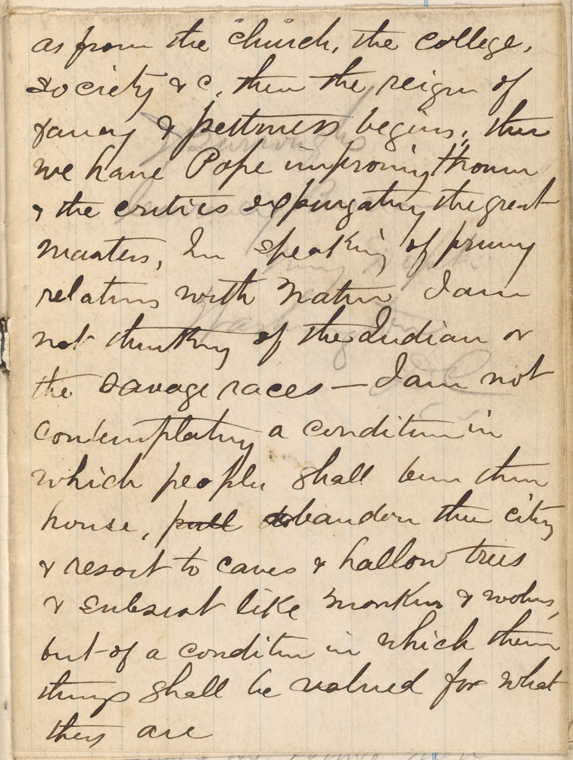 as from the church, the college,
society & c, then the reign of
fancy & pettiness begins, then
we have Pope improving Homer
& the critics expurgating the great
masters, In speaking of primy
relations with Nature I am
not thinking of the Indian or
the savage races — I am not
contemplating a condition in
which people shall burn their
house, pull abandon their city
& resort to caves & hallow trees
& subsist like monkeys & wolves,
but of a condition in which these
things shall be valued for what
they are